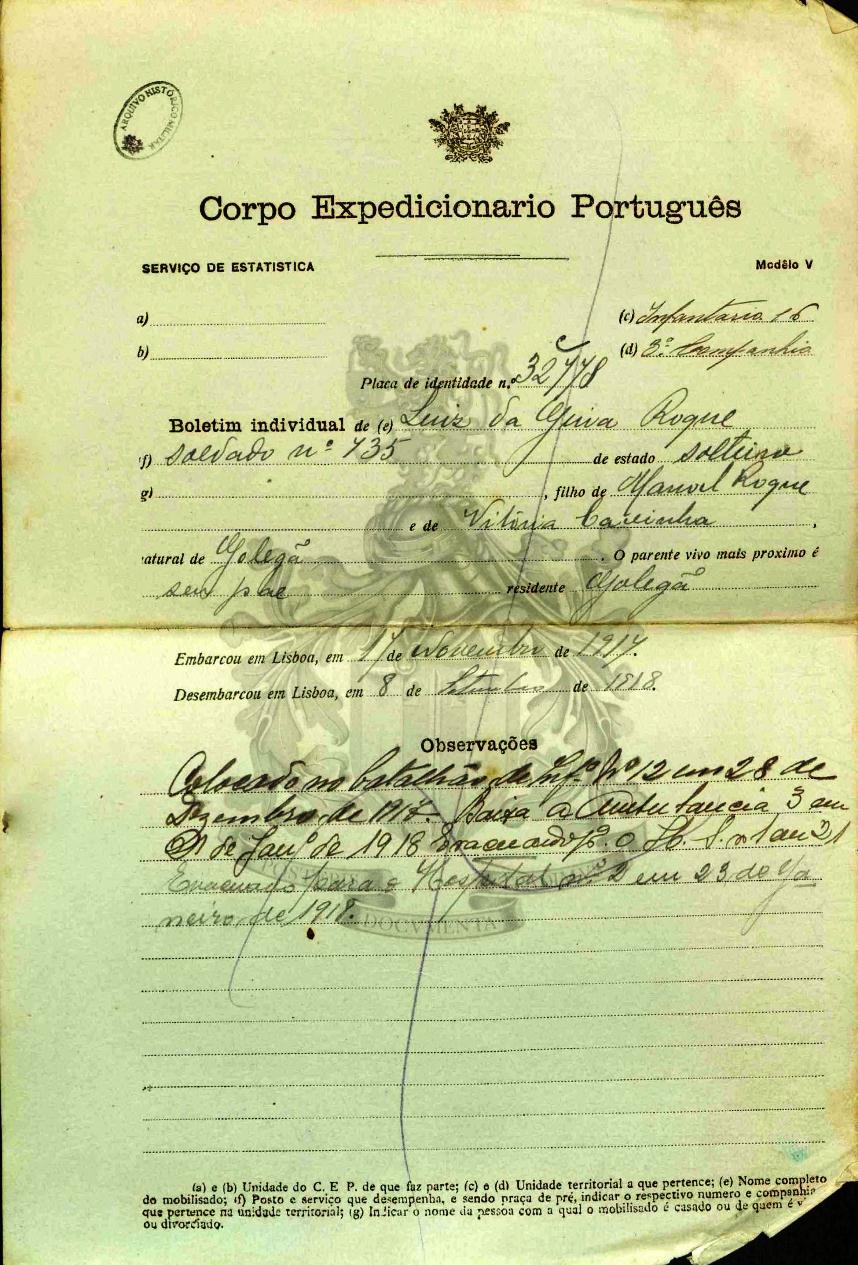 ARQUIVO HISTÓRICO MILITAR
Corpo Expedicionario Português
SERVIÇO DE ESTATISTICA
Modêlo V
a)
(c) Infantaria 16
b)
(d) 3ª Companhia
Placa de identidade n.º 32778
Boletim individual de (e) Luiz da Guia Roque
f) soldado nº 735 de estado solteiro
g) , filho de Manoel Roque
e de Vitória ,
natural de Golegã . O parente vivo mais proximo é
seu pae residente Golegã
Embarcou em Lisboa, em 17 de Novembro de 1917.
Desembarcou em Lisboa, em 8 de Setembro de 1918.
Observações
Colocado no batalhão de Infª Nº 12 em 28 de
Dezembro de 1917. Baixa á Ambulancia 3 em
21 de Janº de 1918 Evacuado pª o H. S. nº 1 em 21
Evacuado para o Hospital nº 2 em 23 de Ja
neiro de 1918.
DOCVMENTA
(a) e (b) Unidade do C. E P. de que faz parte; (c) e (d) Unidade territorial a que pertence; (e) Nome completo
do mobilisado; (f) Posto e serviço que desempenha, e sendo praça de pré, indicar o respectivo numero e companhia
que pertence na unidade territorial; (g) Indicar o nome da pessoa com a qual o mobilisado é casado ou de quem é v
ou divorciado.